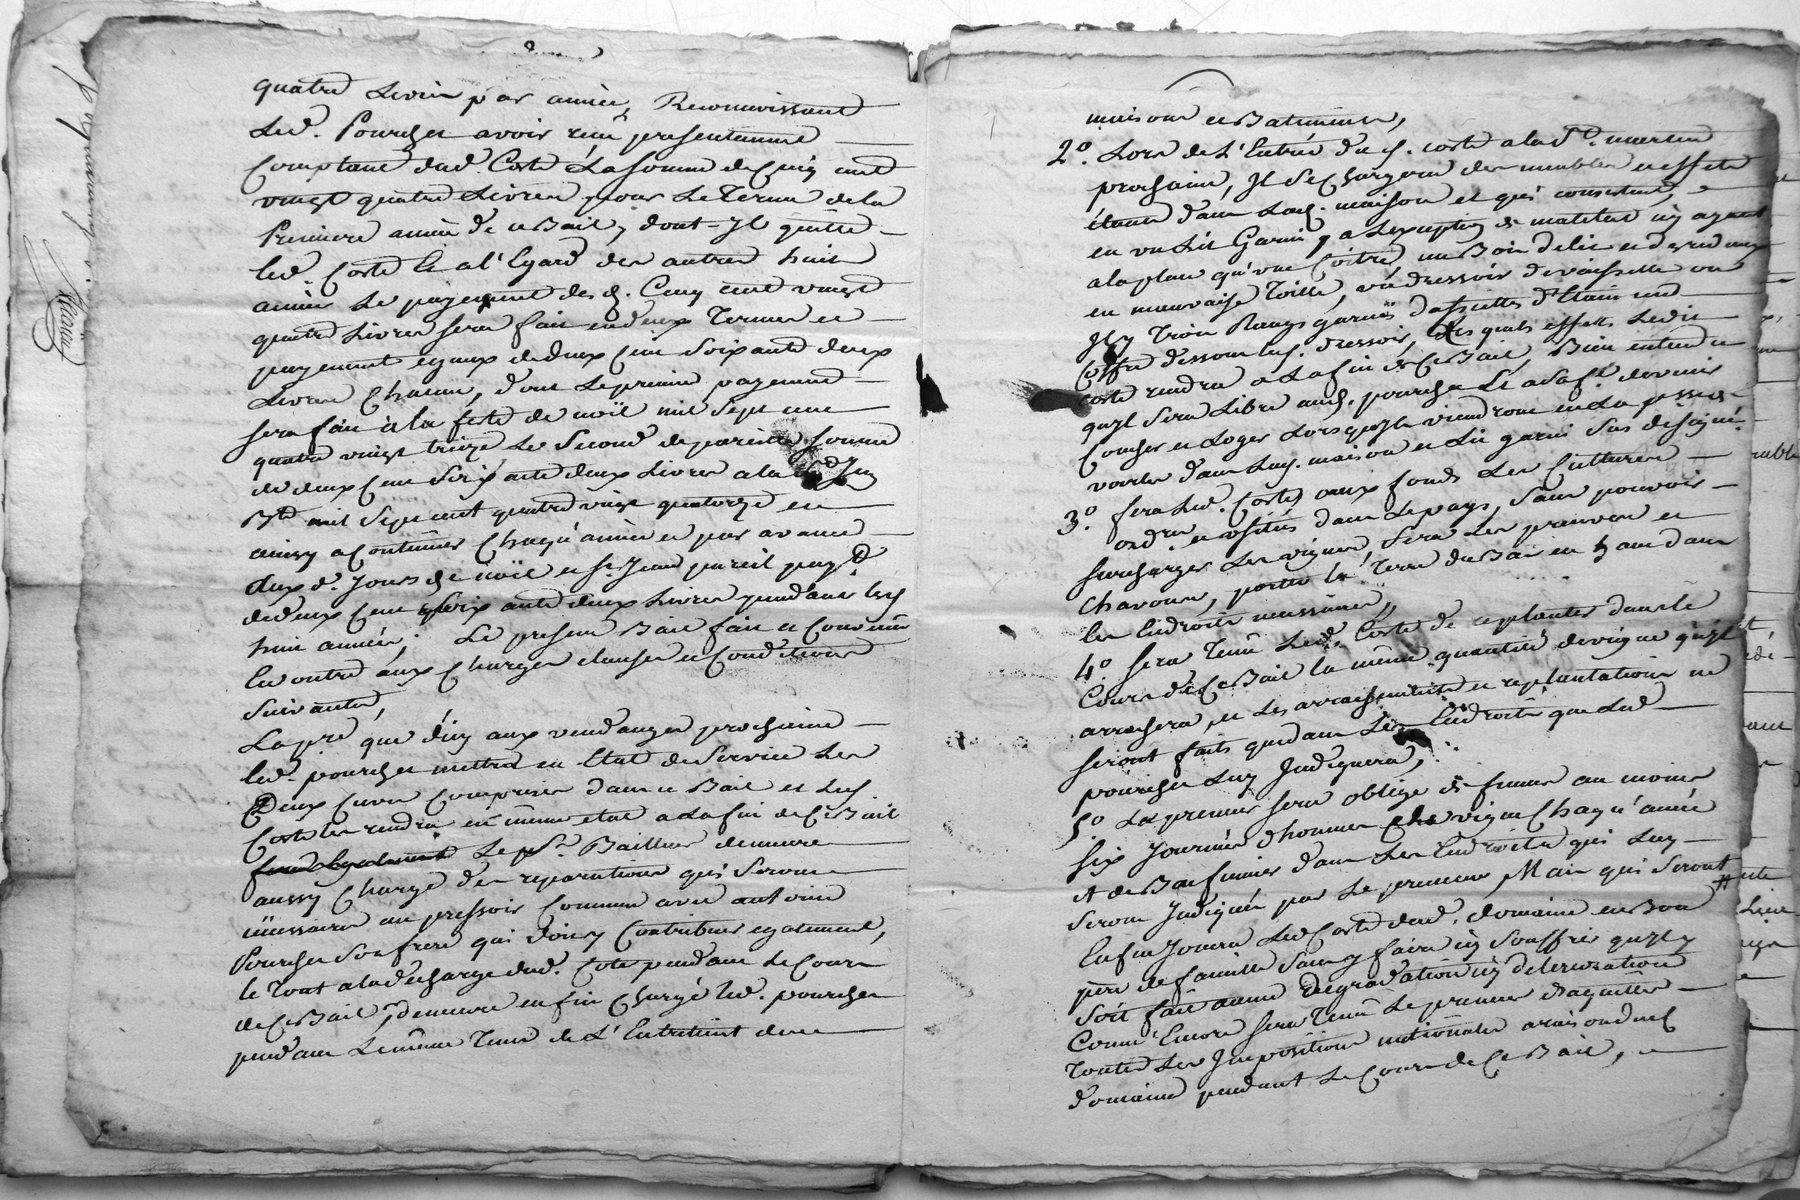 quatre Livres par année, Reconnoissant
Led. Pourcher avoir reçu presentement
Comptant dud. Coste la somme de Cinq cent
vingt quatre Livres pour Le Terme de la
Premiere année de ce Bail, dont Il quitte
led. Coste Et a l'Egard des autres huit
années Le payement desd. Cinq cent vingt
quatre Livres sera fait en deux Termes et
payements egaux de deux Cent Soixante deux
Livres Chacun, dont Le premier payement
sera fait à la fete de noël mil Sept cent
quatre vingt treize Le Second de pareille somme
de deux Cent Soixante deux Livres a la St Jean
Bte mil Sept cent quatre vingt quatorze et
ainsy a Continuer Chaqu'année et par avance
aux d. Jours de noël et St Jean pareil payt
de deux Cent Soixante deux Livres pendant lesd
huit années; Le present Bail fait et Convenu
En outre aux Charges clauses et Conditions
Suivantes,
La pre que d'icy aux vendanges prochaines
led. pourcher mettra en Etat de Service Les
Deux Cuves Comprises dans ce Bail et Led
Coste les rendra en même etat a La fin de Ce Bail
Le Sr. Bailleur demeure
aussy Chargé des reparations qui Seront
nécessaires au pressoir Commun avec antoine
Pourcher Son frere qui doivt y Contribuer egalement,
le Tout a la décharge dud. Coste pendant Le Cours
de Ce Bail, demeure enfin Chargé led. pourcher
pendant Le même Tems de L'Entretient de ce
maisons et Batiments,
2º. Lors de L'Entrée dud. Coste a la St. martin
prochaine, Il Se Chargera des meubles et effets
étant dans Lad. maison et qui consistent,
en un Lit Garni, a L'exception de matelat n'y ayant
a la place qu'une Coitre un Bois de lit et des rideaux
en mauvaise Toille, un dressoir de vaisselle ou
Il y Trois Rangs garnis d'assiettes d'Etain un
Coffre dessous led. dressoir, Les quels effets Ledit
Coste rendra a La fin de Ce Bail, Bien entendu
qu'il Sera Libre aud. pourcher Et a Sa fe de venir
Coucher et Loger Lorsqu'ils viendront en La passe
voirles dans Lad. maison et Lit garni Sus designé.
3º. fera Led. Coste aux fonds Les Cultures
ordres et usités dans Le pays, Sans pouvoir
Surcharger Les vignes, fera Les preuves et
Chavons, porter la Terre du Bas en haut dans
les Endroits necessaires,
4º Sera Tenu Led. Coste de replanter dans le
Cours de Ce Bail la même quantité de vigne qu'il
arrachera, et Les arrachements et replantations ne
Seront faits que dans Les Endroits que Led
pourcher Luy Indiquera,
5º Le preneur Sera obligé de fumer au moins
Six Journées d'hommes de vigne Chaqu'année
et de Bon fumier dans Les Endroits qui Luy
Seront Indiqués par Le preneur, Mais qui Seront
Enfin Jouira Led Coste dud. domaine en Bon
pere de famille Sans y faire ny Souffrir qu'il y
Soit fait aucune degradation ny deterioration
Comm'Encore Sera Tenu Le preneur d'aquitter
Toutes Les Impositions nationales a raison dud
domaine pendant Le Cours de Ce Bail,